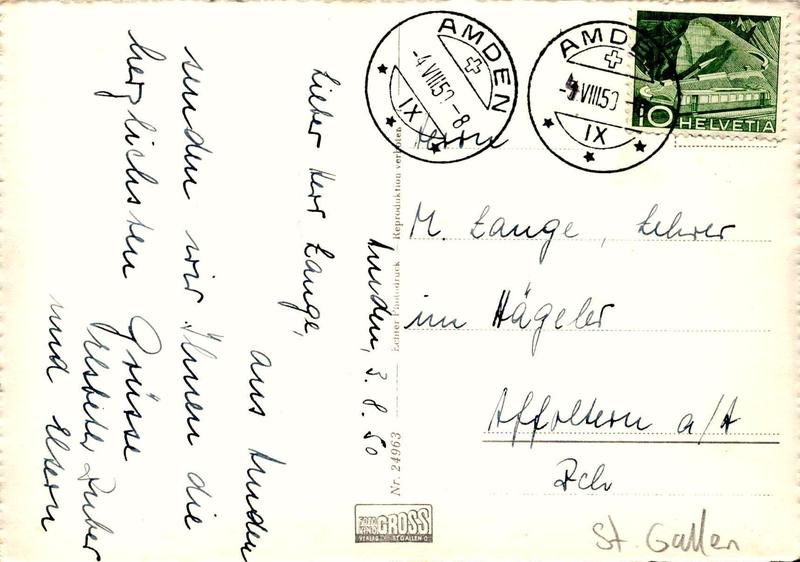 Amden, 3. 8. 50
Lieber Herr Lange,
aus Amden
senden wir Ihnen die
herzlichsten Grüsse
Huber
und Eltern
Herrn
M. Lange, Lehrer
im Hägeler
Affoltern a/A
Zch
St. Gallen
AMDEN
-4.VIII.50.-8
IX
AMDEN
VIII.50
IX
10 HELVETIA
Echter Photodruck - Reproduktion verboten
Nr. 24963
FOTO
GROSS
VERLAG ST GALLEN O